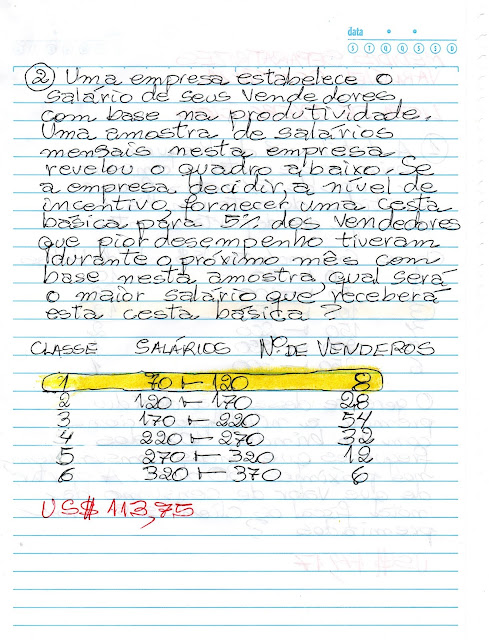 data
S T Q Q S S D
2 Uma empresa estabelece o
salário de seus vendedores
com base na produtividade.
Uma amostra de salários
mensais nesta empresa
revelou o quadro abaixo. Se
a empresa decidir, a nível de
incentivo, fornecer uma cesta
básica para 5% dos vendedores
que pior desempenho tiveram
durante o próximo mês com
base nesta amostra, qual será
o maior salário que receberá
esta cesta básica?
CLASSE SALÁRIOS Nº. DE VENDEROS
1 70 ⊢ 120 8
2 120 ⊢ 170 28
3 170 ⊢ 220 54
4 220 ⊢ 270 32
5 270 ⊢ 320 12
6 320 ⊢ 370 6
US$ 113,75